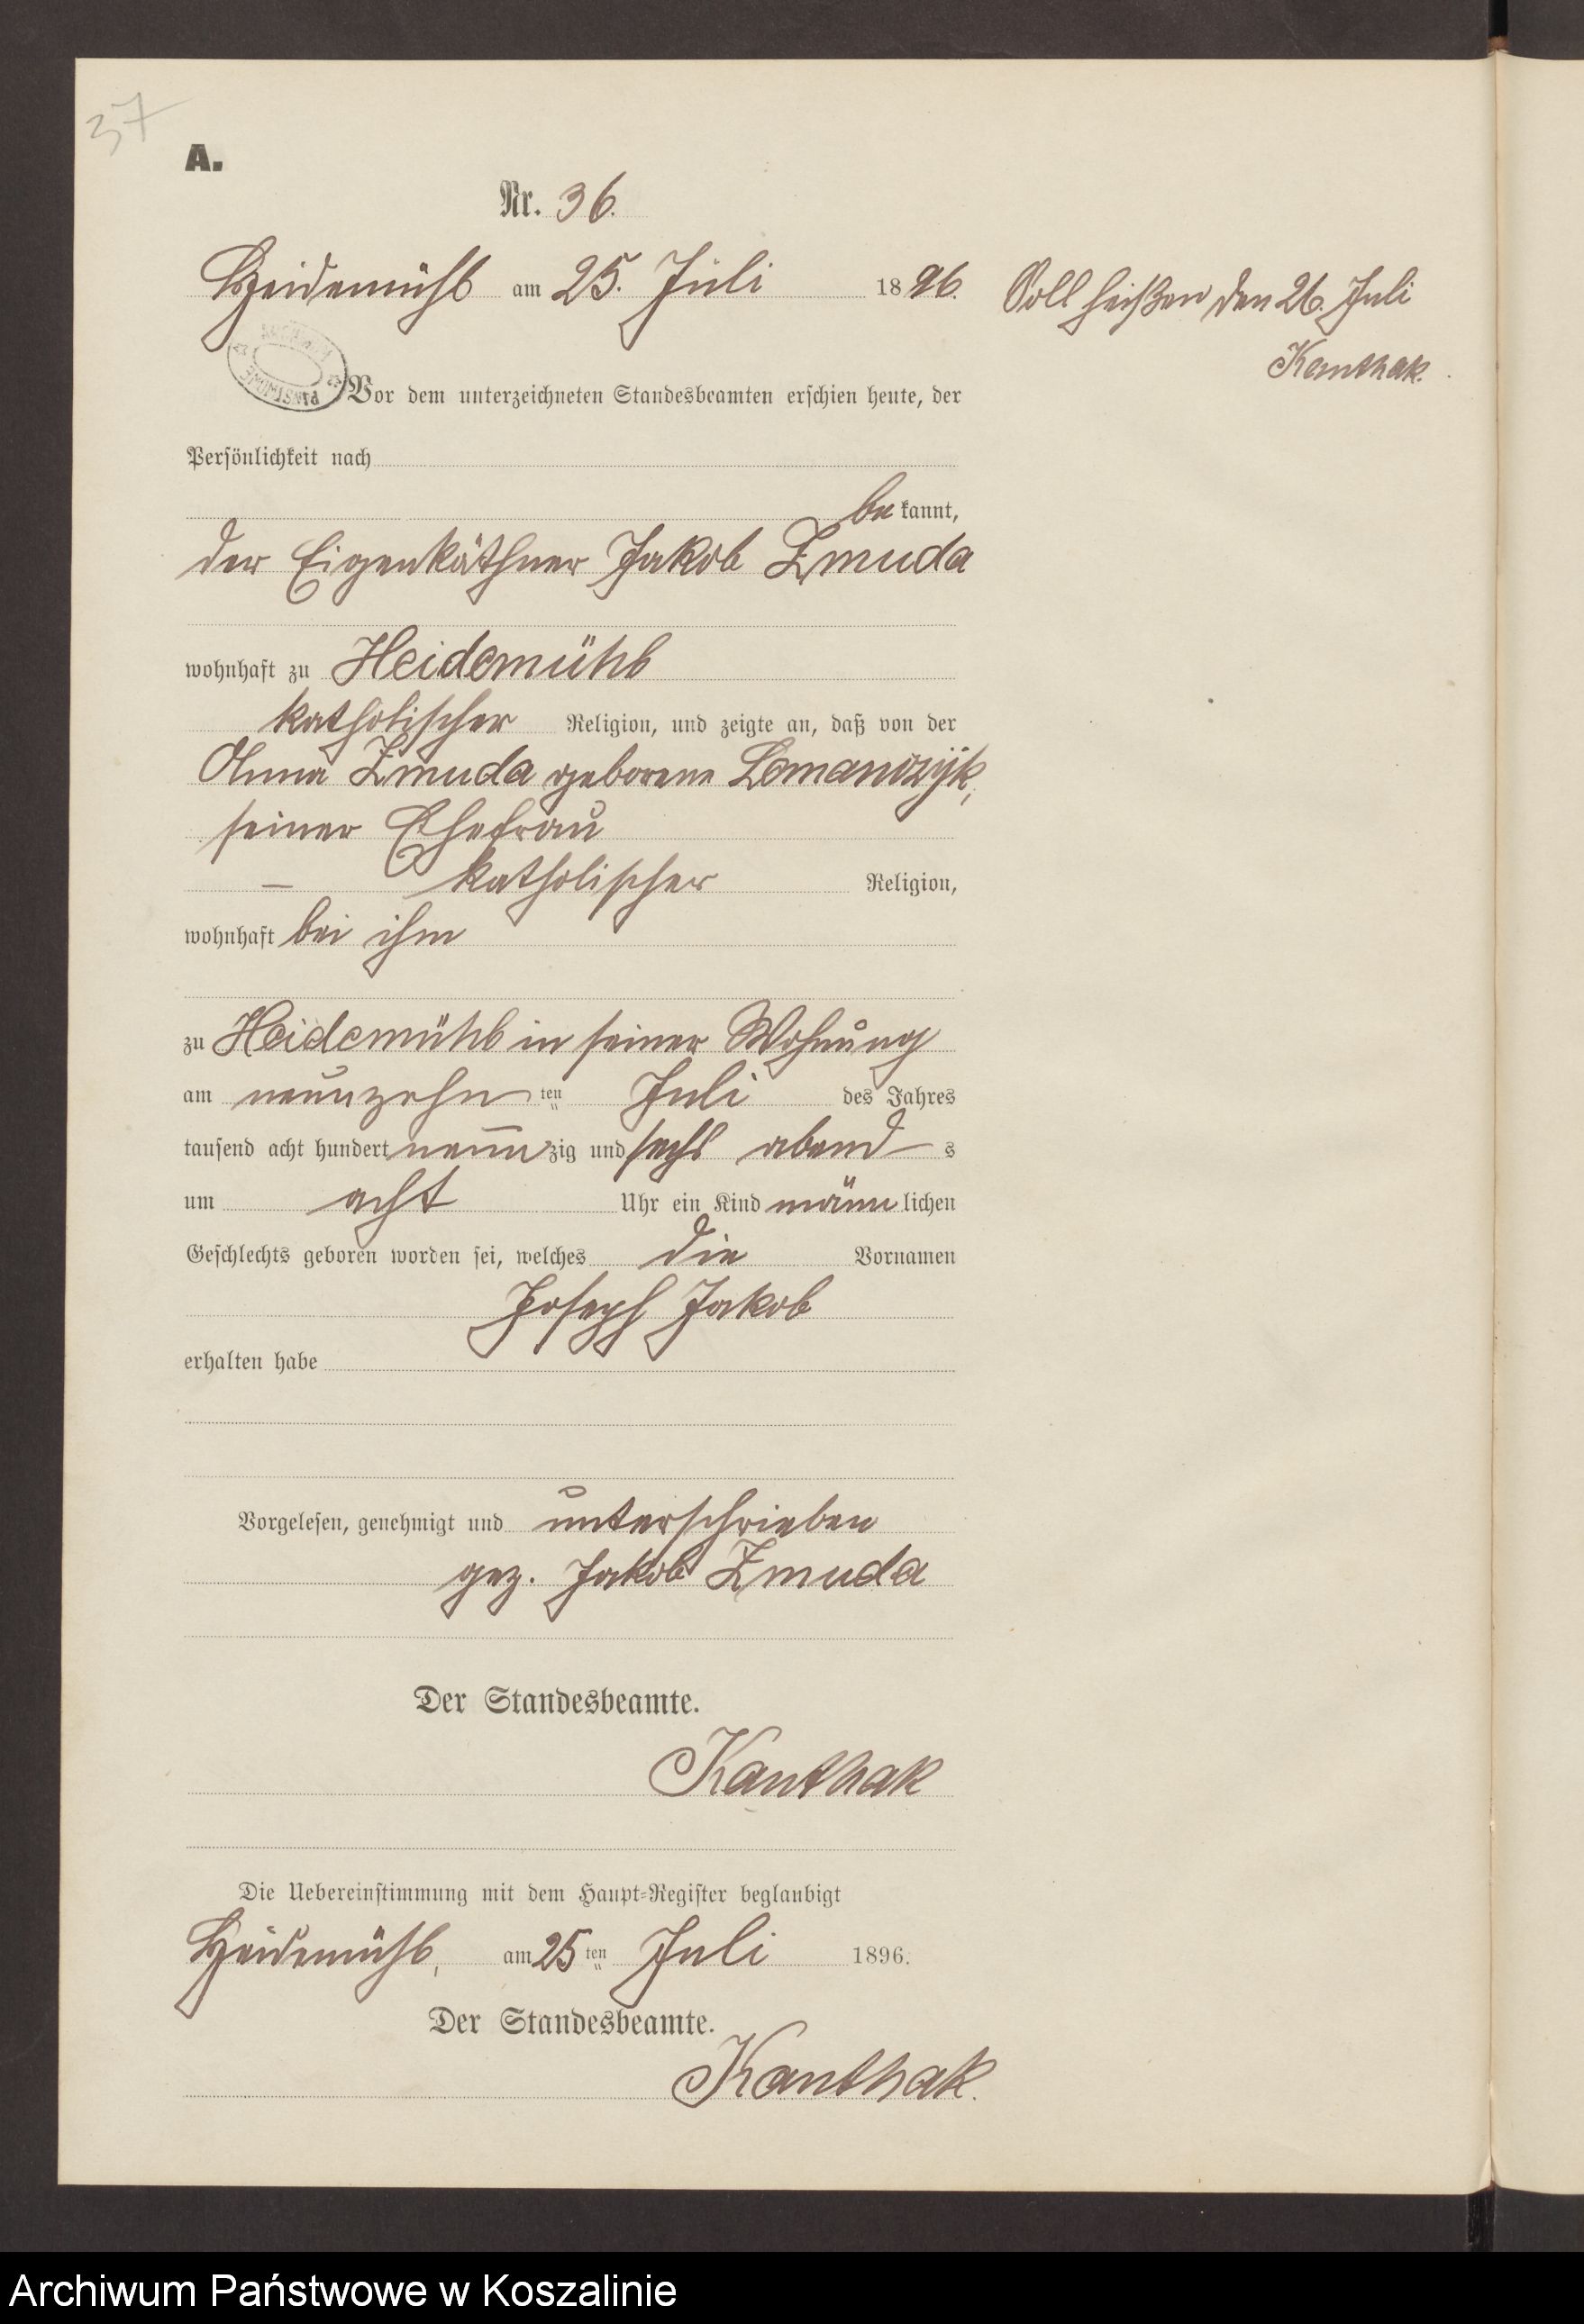 37
A.
Nr. 36.
Heidemühl am 25. Juli 1896.
Soll heißen den 26. Juli
Kanthak.
Vor dem unterzeichneten Standesbeamten erschien heute, der
Persönlichkeit nach
bekannt,
der Eigenkäthner Jakob Zmuda
wohnhaft zu Heidemühl
katholischer Religion, und zeigte an, daß von der
Anna Zmuda geborene Lomanczÿk,
seiner Ehefrau
— katholischer Religion,
wohnhaft bei ihm
zu Heidemühl in seiner Wohnung
am neunzehn ten Juli des Jahres
tausend acht hundert neunzig und sechs abends
um acht Uhr ein Kind männlichen
Geschlechts geboren worden sei, welches die Vornamen
Joseph Jakob
erhalten habe
Vorgelesen, genehmigt und unterschrieben
gez. Jakob Zmuda
Der Standesbeamte.
Kanthak
Die Uebereinstimmung mit dem Haupt-Register beglaubigt
Heidemühl, am 25ten Juli 1896.
Der Standesbeamte.
Kanthak.
Archiwum Państwowe w Koszalinie